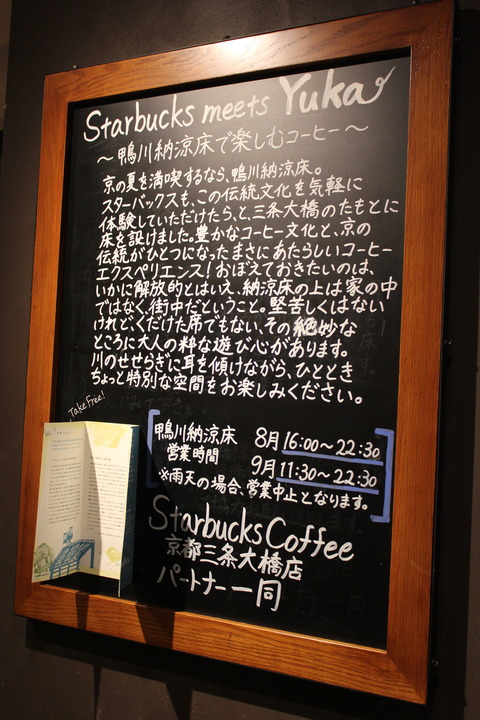 Starbucks meets Yuka
～鴨川納涼床で楽しむコーヒー～
京の夏を満喫するなら、鴨川納涼床。
スターバックスも、この伝統文化を気軽に
体験していただけたら、と、三条大橋のたもとに
床を設けました。豊かなコーヒー文化と、京の
伝統がひとつになったまさにあたらしいコーヒー
エクスペリエンス！おぼえておきたいのは、
いかに解放的とはいえ、納涼床の上は家の中
ではなく、街中だということ。堅苦しくはない
けれどくだけた席でもない、その絶妙な
ところに大人の粋な遊び心があります。
川のせせらぎに耳を傾けながら、ひととき
ちょっと特別な空間をお楽しみください。
Take Free!
鴨川納涼床 8月 16:00～22:30
営業時間 9月 11:30～22:30
※雨天の場合、営業中止となります。
Starbucks Coffee
京都三条大橋店
パートナー一同